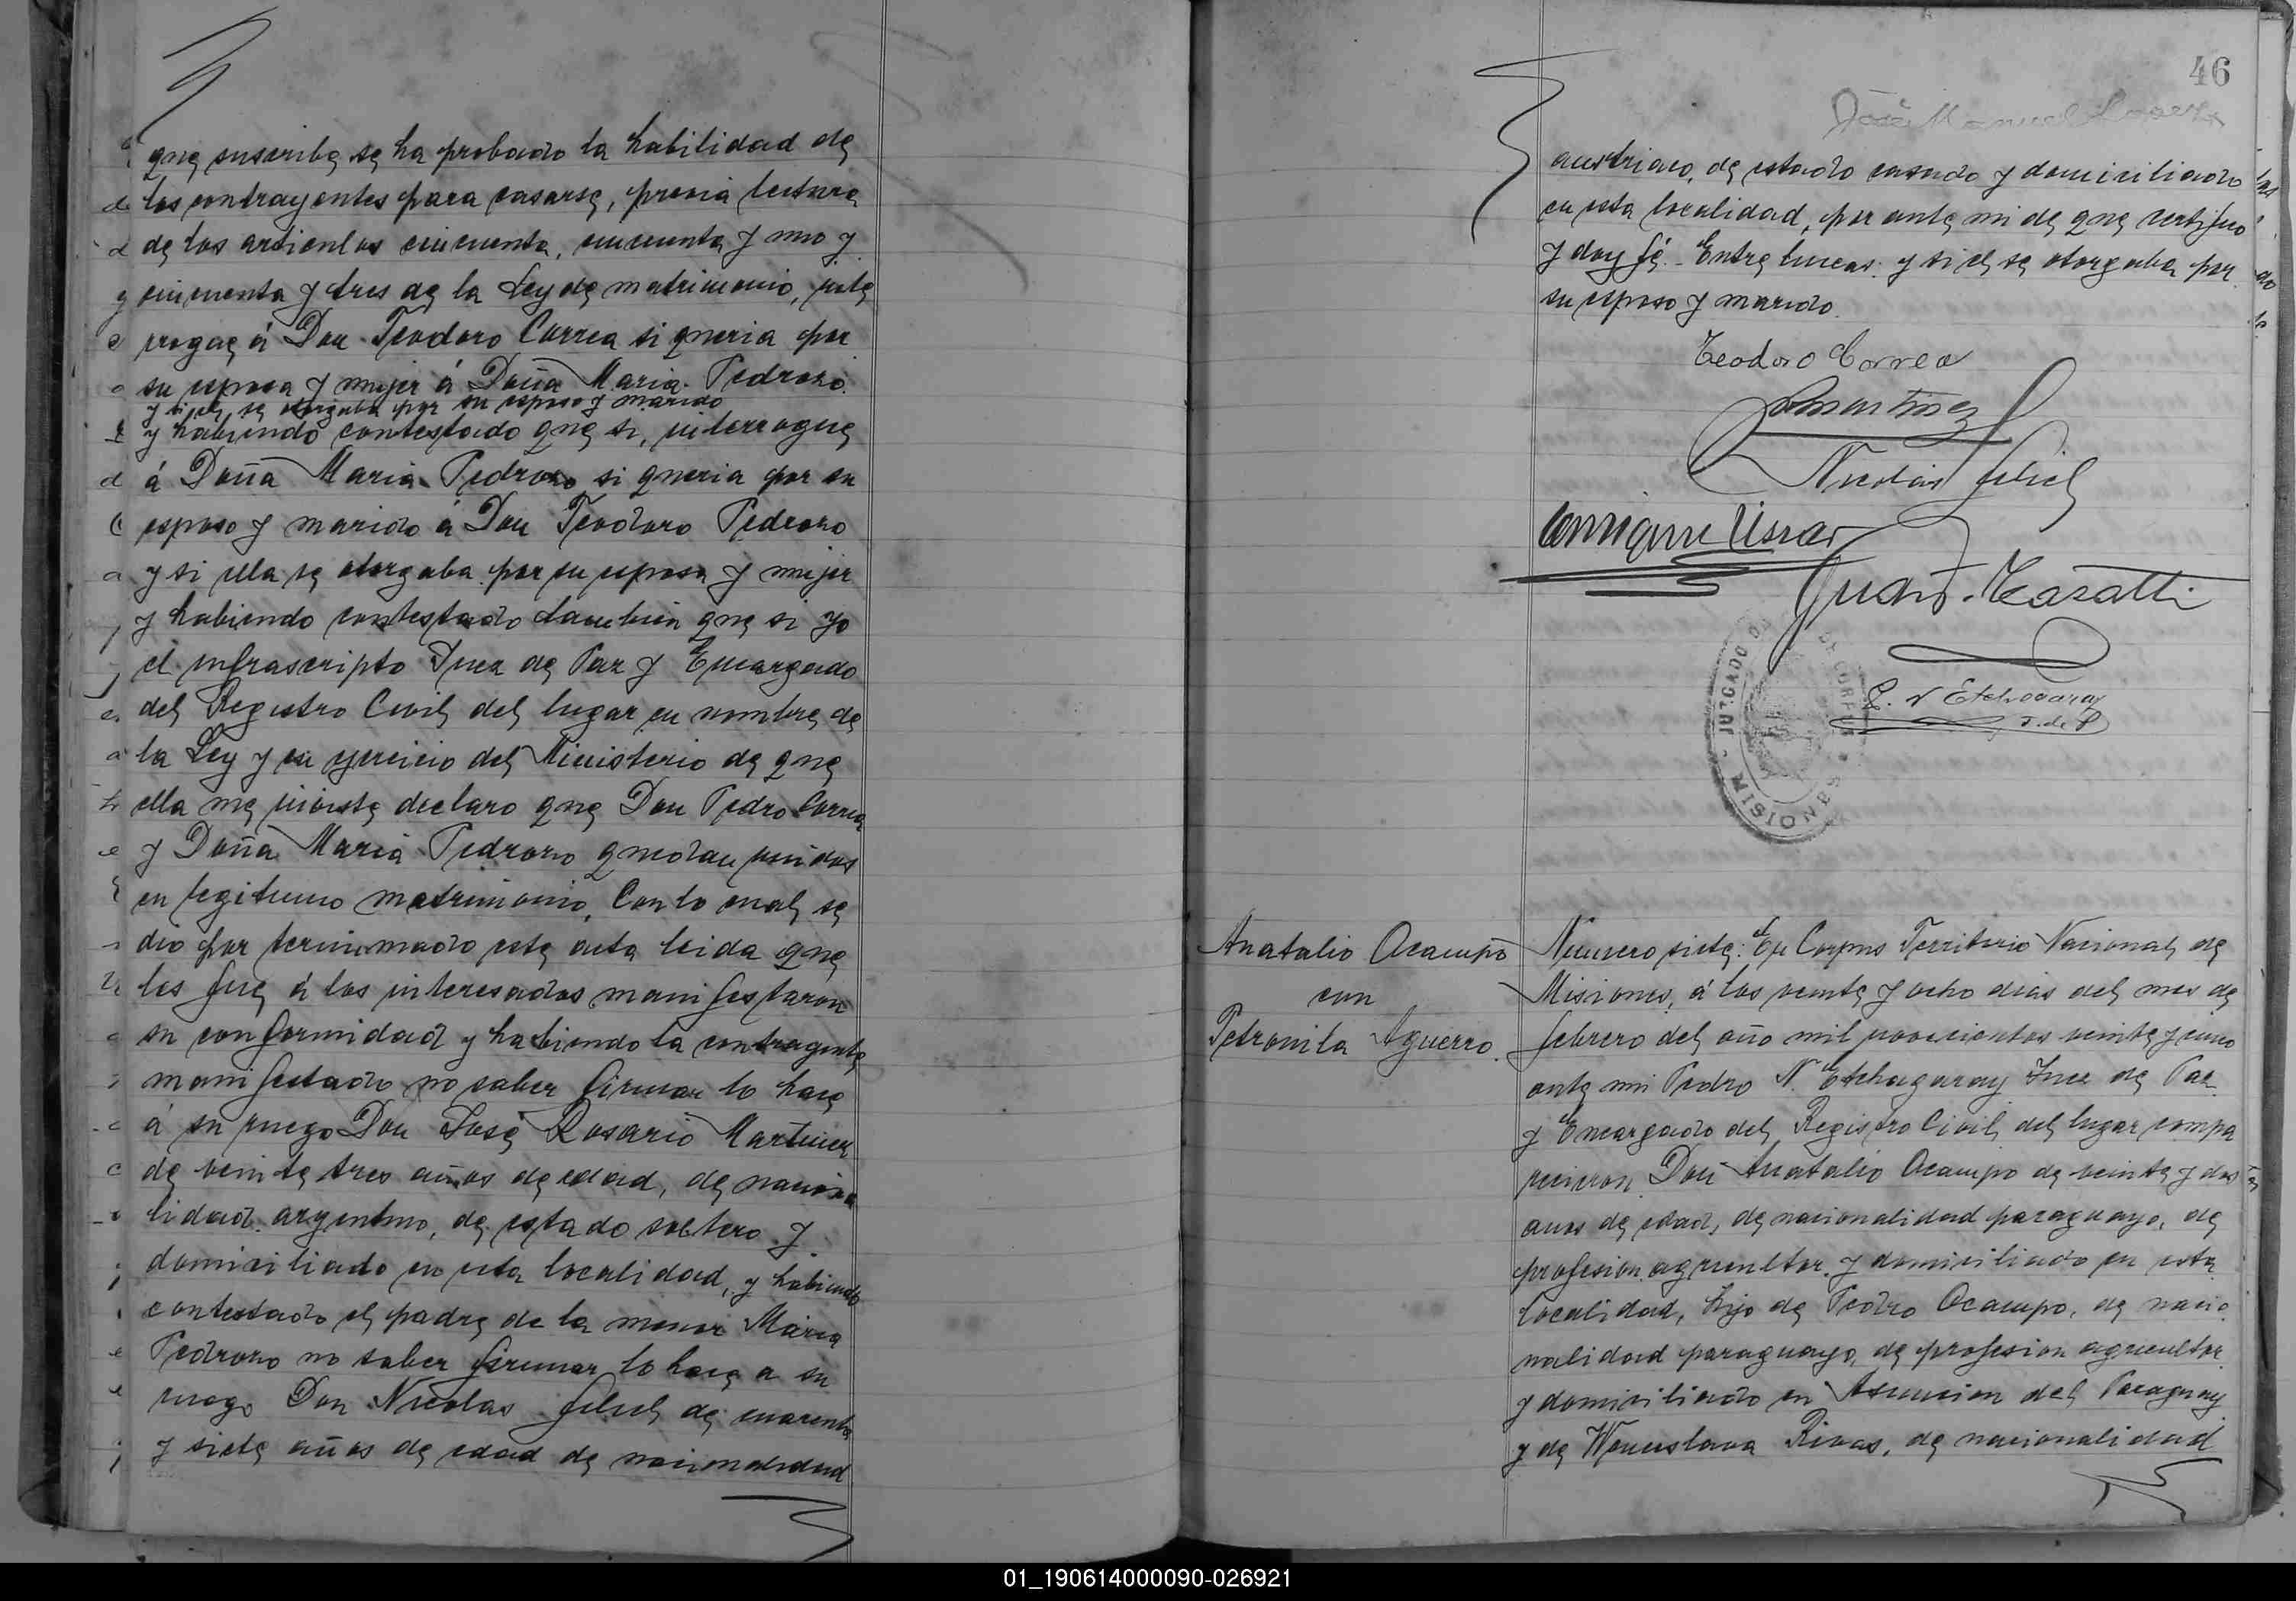 que suscribe se ha probado la habilidad de
los contrayentes para casarse, previa lectura
de los articulos cincuenta, cincuenta y uno y
cincuenta y tres de la Ley de matrimonio, inte
rogue á Don Teodoro Correa si queria por
su esposa y mujer á Doña Maria Pedrozo
y si el se otorgaba por su esposo y marido
y habiendo contestado que si, interrogue
á Doña Maria Pedrozo si queria por su
esposo y marido á Don Teodoro Pedrozo
y si ella se otorgaba por su esposa y mujer
y habiendo contestado tambien que si yo
el infrascripto Juez de Paz y Encargado
del Registro Civil del lugar en nombre de
la Ley y en ejercicio del Ministerio de que
ella me inviste declaro que Don Pedro Correa
y Doña Maria Pedrozo quedan unidos
en legitimo matrimonio. Con lo cual se
dio por terminado esta acta leida que
les fue á los interesados manifestaron
su conformidad y habiendo la contragente
manifestado no saber firmar lo hace
á su ruego Don José Rosario Martinez
de veinte tres años de edad, de naciona
lidad argentino, de estado soltero y
domiciliado en esta localidad, y habiendo
contestado el padre de la menor Maria
Pedrozo no saber firmar lo hace a su
ruego Don Nicolas de cuarenta
y siete años de edad de nacionalidad
46
José Manuel
austriaco, de estado casado y domiciliado
en esta localidad, por ante mi de que certifico
y doy fé. Entre lineas: y si el se otorgaba por
su esposo y marido.
Teodoro Correa
Martinez
Nicolas
Enrique
Juan
P. N Etchegaray
J. de P
JUZGADO DE DE CORPUS
MISIONES
Anatalio Ocampo
con
Petronila Aguerro.
Numero siete: En Corpus Territorio Nacional de
Misiones, á los veinte y ocho dias del mes de
febrero del año mil novecientos veinte y cinco
ante mi Pedro N. Etchegaray Juez de Paz
y Encargado del Registro Civil del lugar compa
recieron Don Anatalio Ocampo de veinte y dos
anos de edad, de nacionalidad paraguayo, de
profesion agricultor y domiciliado en esta
localidad, hijo de Pedro Ocampo, de nacio
nalidad paraguayo, de profesion agricultor
y domiciliado en Asuncion del Paraguay
y de Wenceslava Rivas, de nacionalidad
01_190614000090-026921